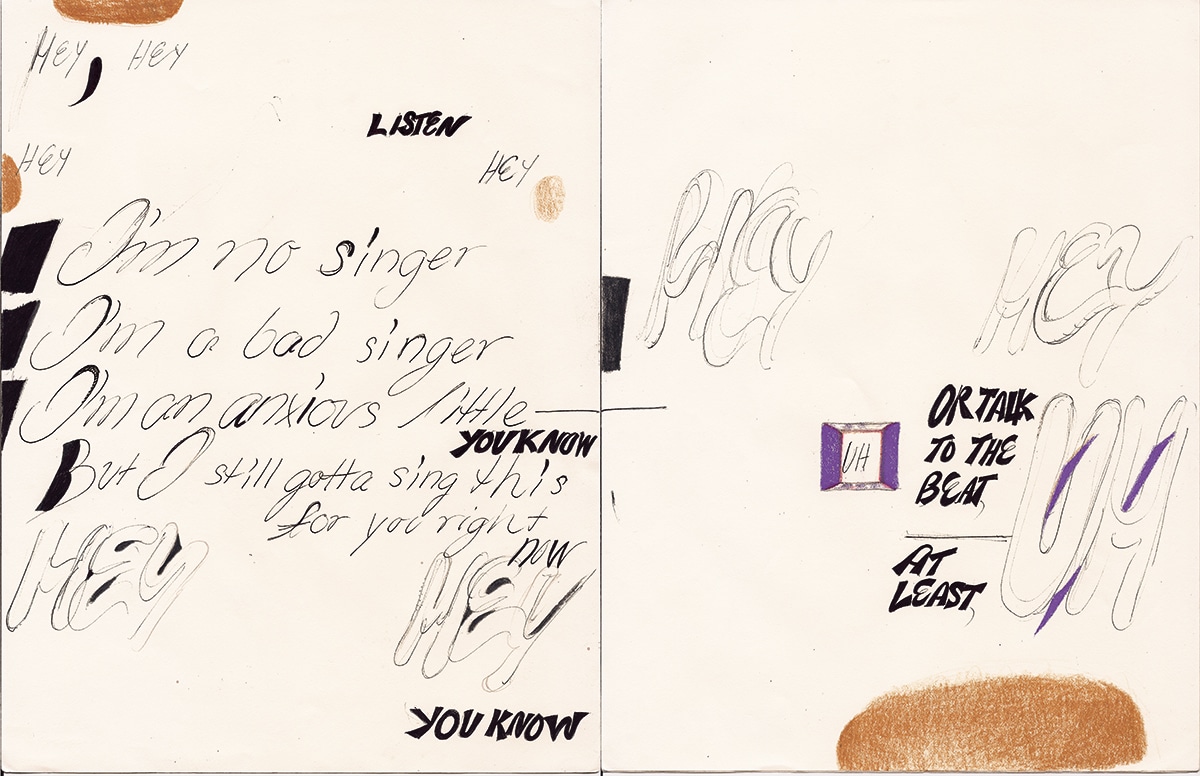 HEY, HEY
LISTEN
HEY
HEY
I'm no singer
I'm a bad singer
I'm an anxious little
YOU KNOW
But I still gotta sing this
for you right
now
HEY
HEY
YOU KNOW
HEY
HEY
OR TALK
TO THE
BEAT,
UH
UH
AT
LEAST,